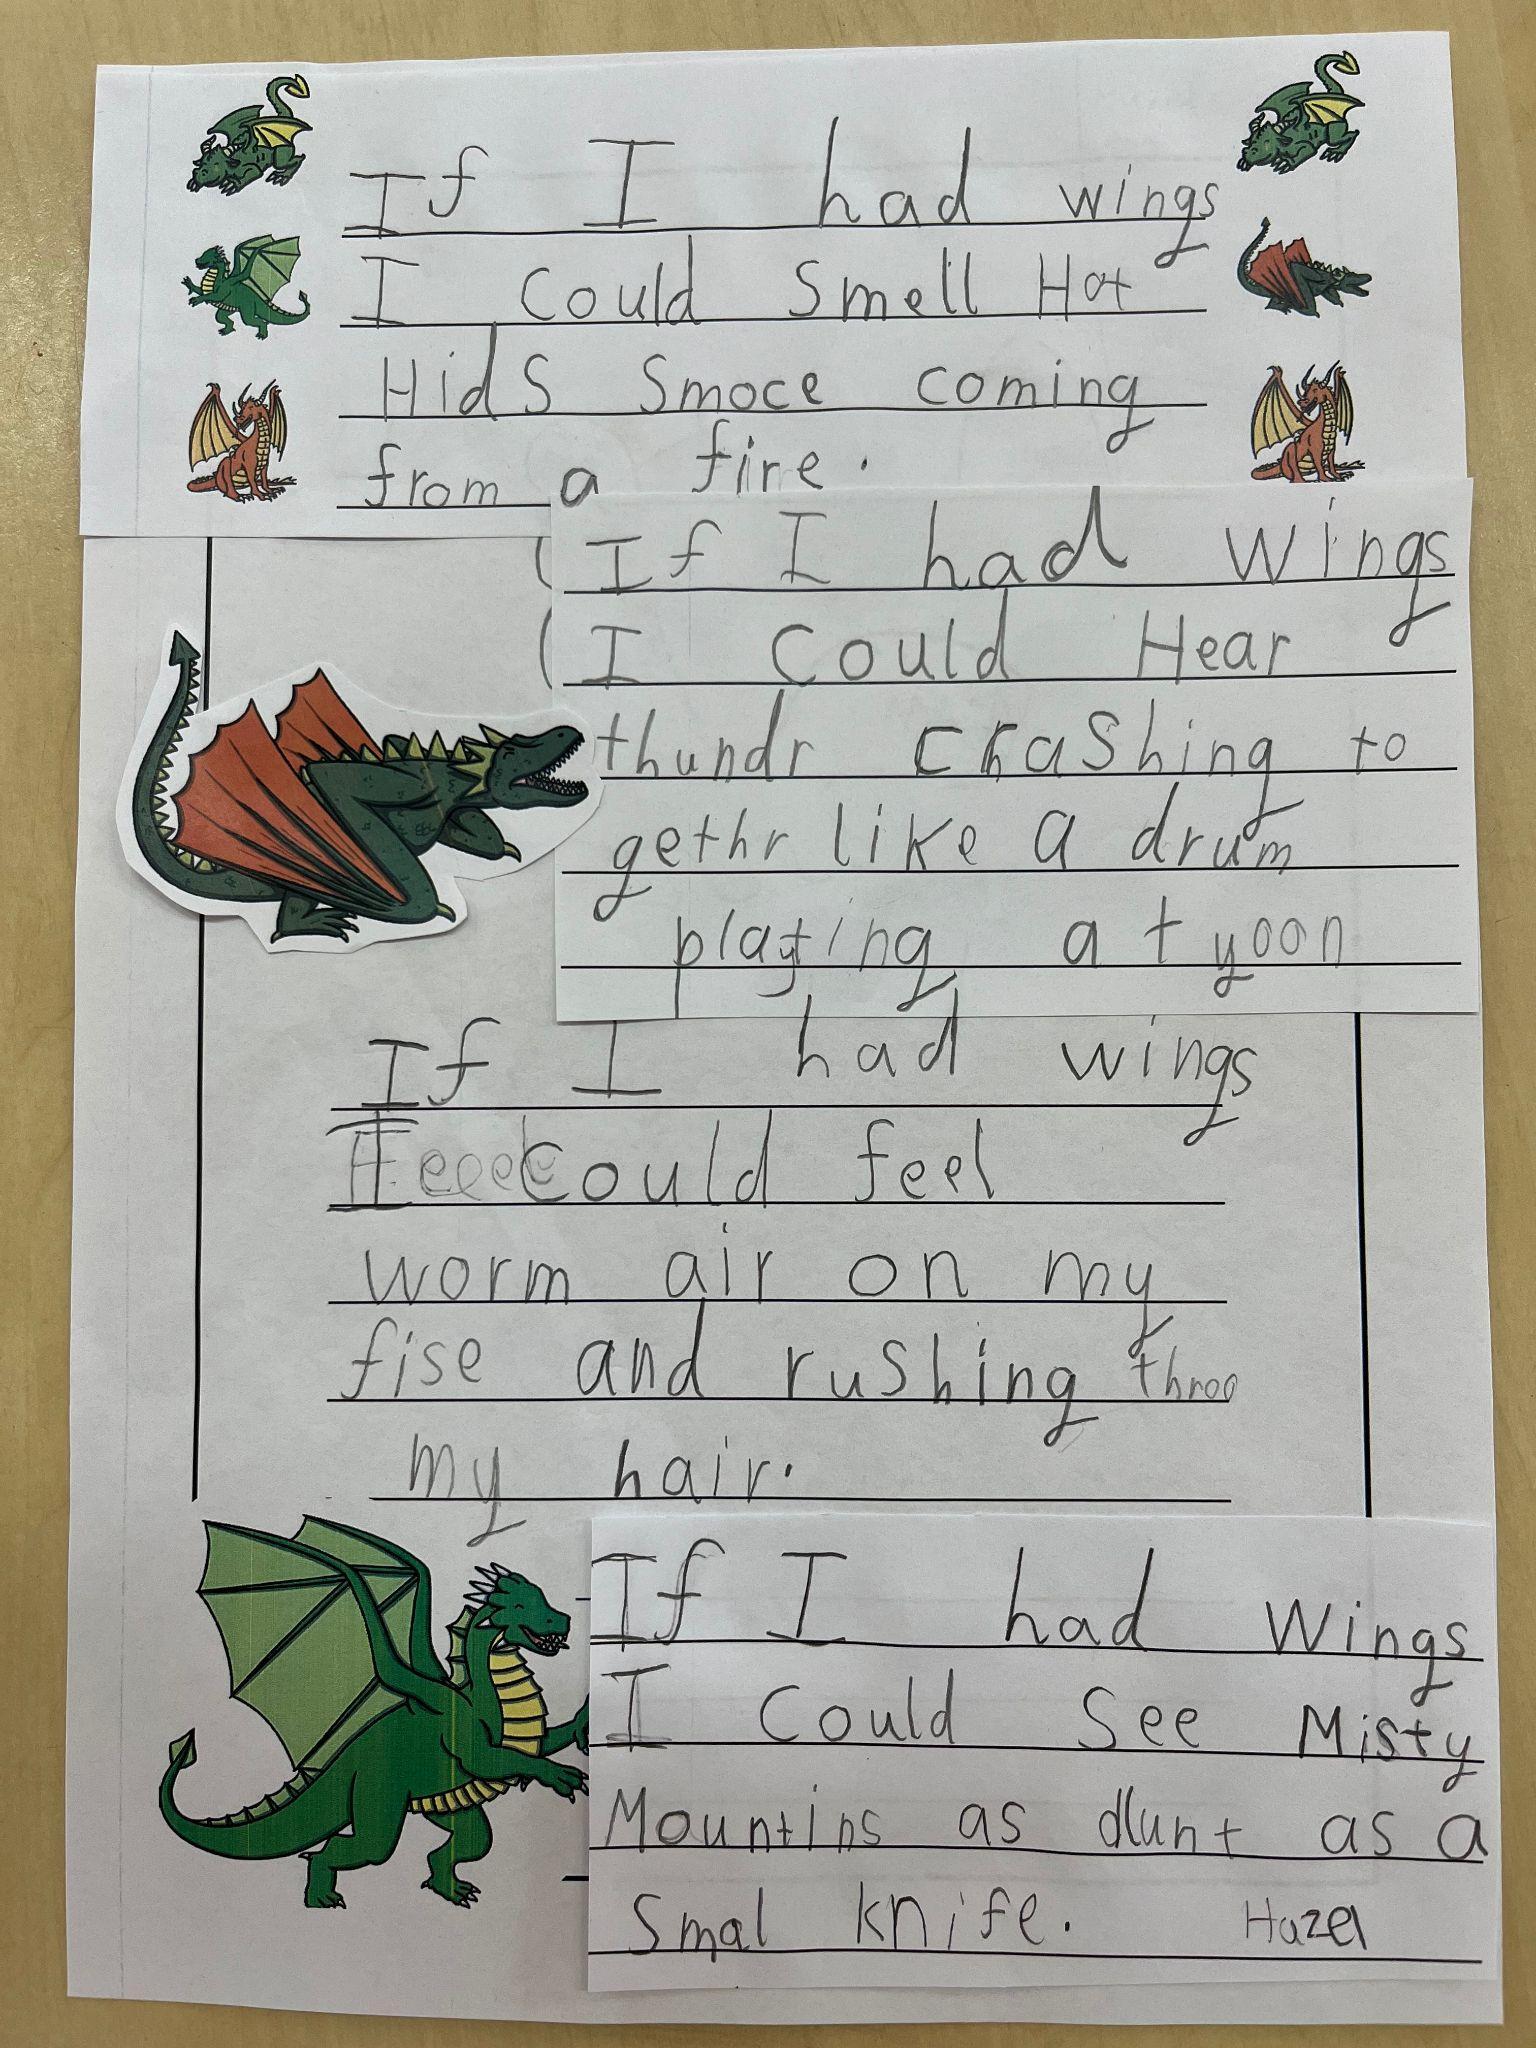 If I had wings
I could Smell Hot
HidS Smoce coming
from a fire.
If I had wings
I Could Hear
thundr crashing to
gethr like a drum
playing a tyoon
If I had wings
I could feel
worm air on my
fise and ruShing throo
my hair.
If I had wings
I Could See Misty
Mountins as dlunt as a
Smal knife. Hazel